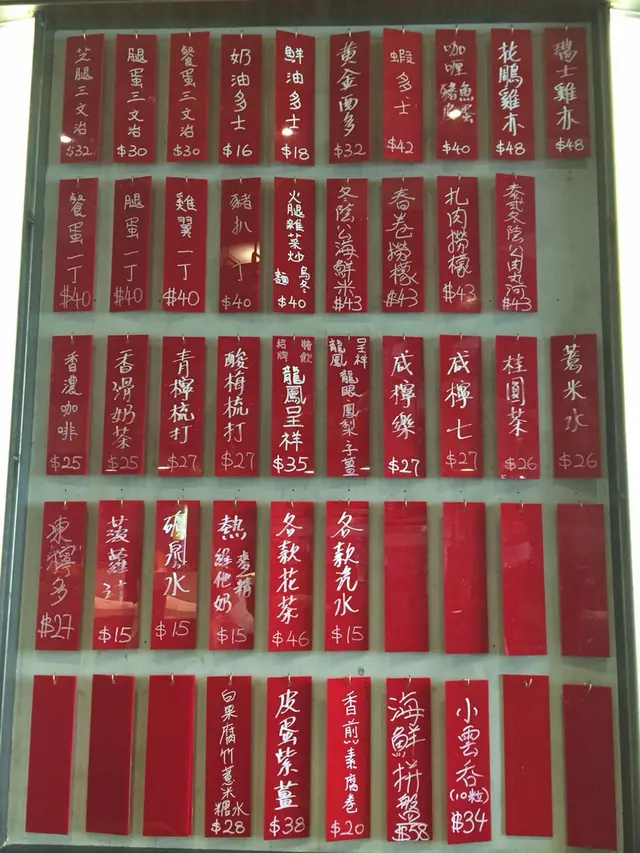 芝腿三文治
$32
腿蛋三文治
$30
餐蛋三文治
$30
奶油多士
$16
鮮油多士
$18
黃金西多
$32
蝦多士
$42
咖喱
豬皮
魚蛋
$40
花鵰雞亦
$48
瑞士雞亦
$48
餐蛋一丁
$40
腿蛋一丁
$40
雞翼一丁
$40
豬扒一丁
$40
火腿雜菜炒
烏冬
麵
$40
冬陰公海鮮米
$43
春卷撈檬
$43
扎肉撈檬
$43
泰式冬陰公肉河
$43
香濃咖啡
$25
香滑奶茶
$25
青檸梳打
$27
酸梅梳打
$27
招牌
特飲
龍鳳呈祥
$35
呈祥
龍鳳
龍眼鳳梨子薑
咸檸樂
$27
咸檸七
$27
桂圓茶
$26
薏米水
$26
凍檸多
$27
菠蘿汁
$15
礦泉水
$15
熱
維他奶
麥精
$15
各款花茶
$46
各款汽水
$15
白果腐竹薏米
糖水
$28
皮蛋紫薑
$38
香煎素腐卷
$20
海鮮拼盤
$58
小雲吞
(10粒)
$34